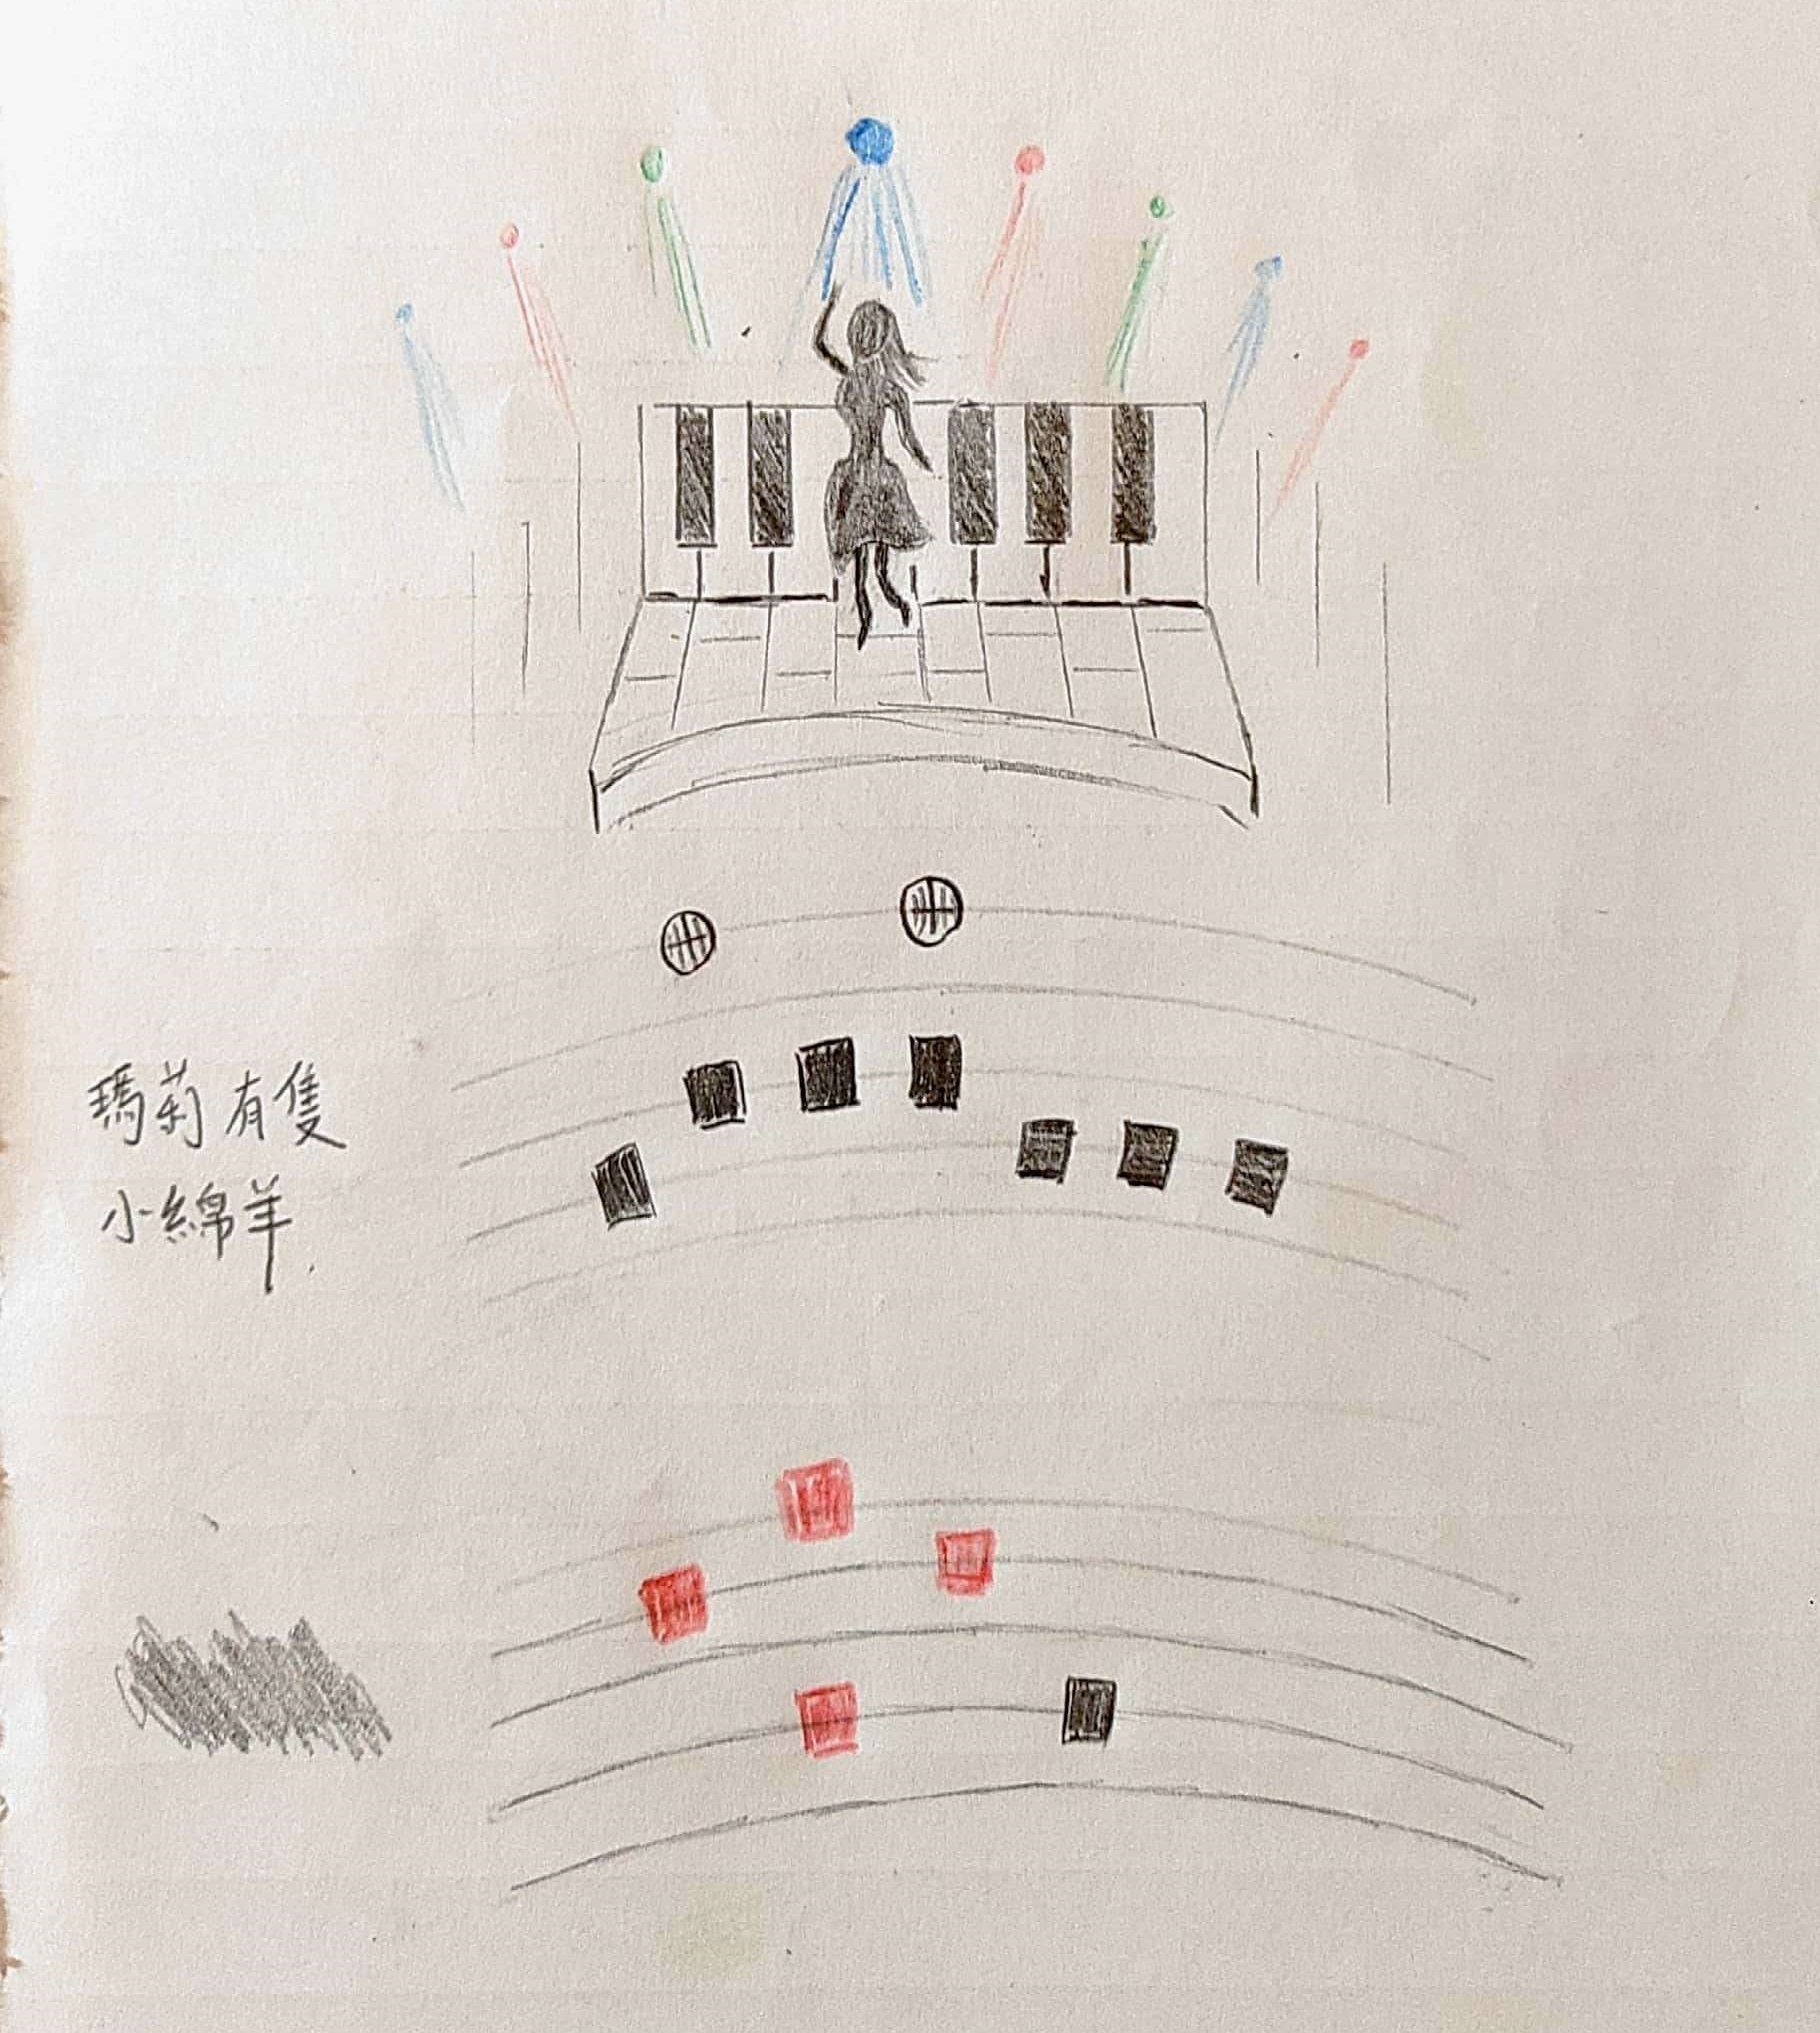 瑪莉有隻
小綿羊.